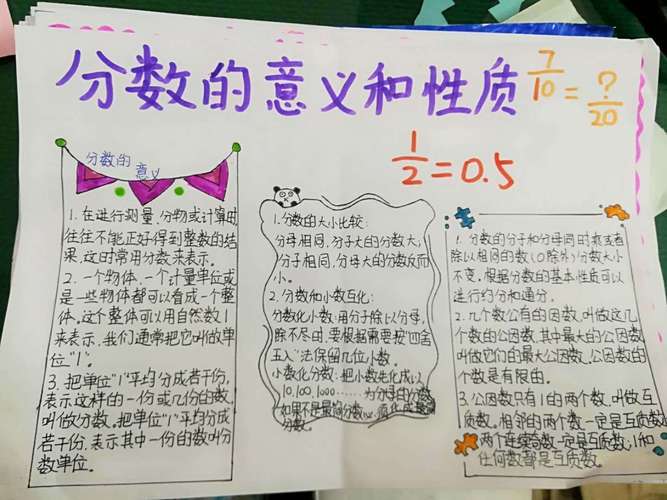 分数的意义和性质
7/10=?/20
1/2=0.5
分数的
意义
1.在进行测量、分物或计算时
往往不能正好得到整数的结
果,这时常用分数来表示。
2.一个物体、一个计量单位或
是一些物体都可以看成一个整
体。这个整体可以用自然数1
来表示,我们通常把它叫做单
位"1"。
3.把单位"1"平均分成若干份,
表示这样的一份或几份的数
叫做分数。把单位"1"平均分成
若干份,表示其中一份的数叫分
数单位。
1.分数的大小比较:
分母相同,分子大的分数大;
分子相同,分母大的分数反而
小。
2.分数和小数互化:
分数化小数:用分子除以分母,
除不尽时,要根据需要按"四舍
五入"法保留几位小数。
小数化分数:把小数先化成以
10,100,1000……为分母的分数
如果不是最简分数,
分数。
1.分数的分子和分母同时乘或者
除以相同的数(0除外)分数大小
不变,根据分数的基本性质可以
进行约分和通分。
2.几个数公有的因数,叫做这几
个数的公因数,其中最大的公因数
叫做它们的最大公因数,公因数的
个数是有限的。
3.公因数只有1的两个数,叫做互
质数。相邻的两个数一定是互质数
两个连续奇数一定是互质数;1和
任何数都是互质数。